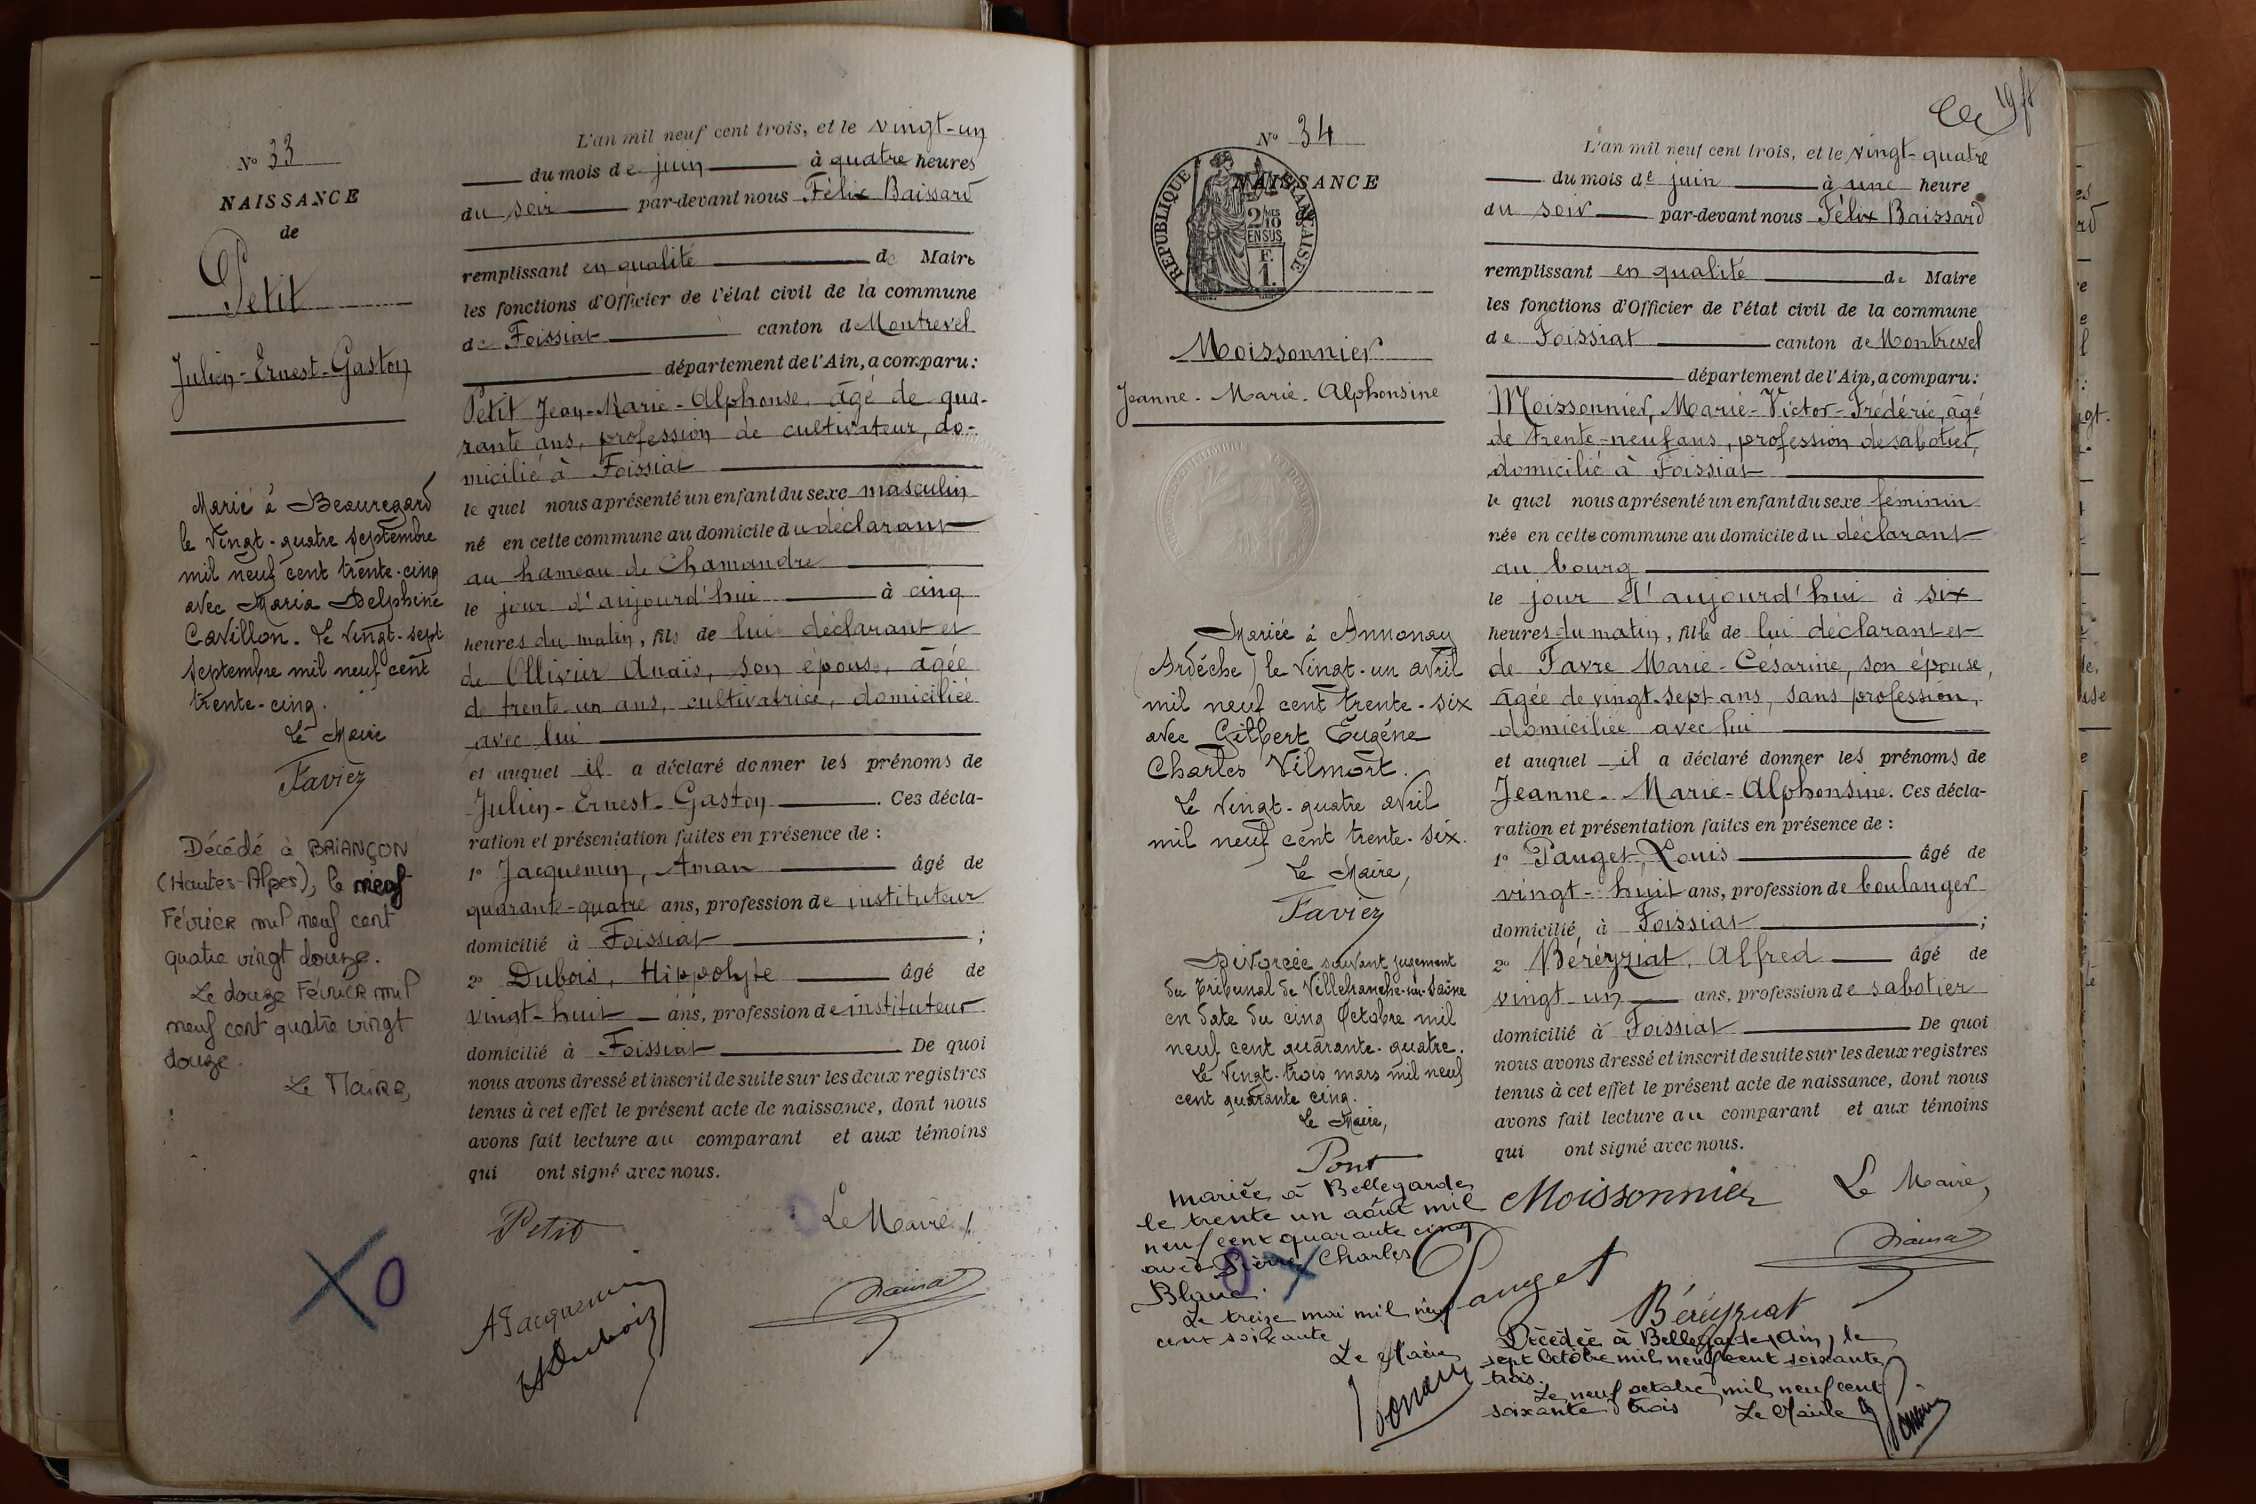 N° 33
NAISSANCE
de
Petit
Julien-Ernest-Gaston
Marié à Beauregard
le vingt-quatre septembre
mil neuf cent trente-cinq
avec Maria Delphine
Cavillon. Le vingt-sept
septembre mil neuf cent
trente-cinq.
Le Maire
Faviez
Décédé à BRIANÇON
(Hautes-Alpes), le neuf
Février mil neuf cent
quatre vingt douze.
Le douze Février mil
neuf cent quatre vingt
douze.
Le Maire,
L'an mil neuf cent trois, et le vingt-un
du mois de juin à quatre heures
du soir par-devant nous Félix Baissard
remplissant en qualité de Maire
les fonctions d'Officier de l'état civil de la commune
de Foissiat canton de Montrevel
département de l'Ain, a comparu:
Petit Jean-Marie-Alphonse, âgé de qua-
rante ans, profession de cultivateur, do-
micilié à Foissiat
le quel nous a présenté un enfant du sexe masculin
né en cette commune au domicile du déclarant
au hameau de Chamandre
le jour d'aujourd'hui à cinq
heures du matin, fils de lui déclarant et
de Ollivier Anaïs, son épouse, âgée
de trente-un ans, cultivatrice, domiciliée
avec lui
et auquel il a déclaré donner les prénoms de
Julien-Ernest-Gaston. Ces décla-
ration et présentation faites en présence de :
1° Jacquemin, Aman âgé de
quarante-quatre ans, profession de instituteur
domicilié à Foissiat ;
2° Dubois, Hippolyte âgé de
vingt-huit ans, profession de instituteur
domicilié à Foissiat De quoi
nous avons dressé et inscrit de suite sur les deux registres
tenus à cet effet le présent acte de naissance, dont nous
avons fait lecture au comparant et aux témoins
qui ont signé avec nous.
Petit
Le Maire,
A Jacquemin
H Dubois
N° 34
NAISSANCE
de
RÉPUBLIQUE FRANÇAISE
2/10
EN SUS
F.
1.
Moissonnier
Jeanne-Marie-Alphonsine
Mariée à Annonay
(Ardèche) le vingt-un avril
mil neuf cent trente-six
avec Gilbert Eugène
Charles Vilmort.
Le vingt-quatre avril
mil neuf cent trente-six.
Le Maire,
Faviez
Divorcée suivant jugement
du Tribunal de Villefranche-sur-Saône
en date du cinq Octobre mil
neuf cent quarante-quatre.
Le vingt-trois mars mil neuf
cent quarante cinq.
Le Maire,
Pont
mariée à Bellegarde
le trente un août mil
neuf cent quarante cinq
avec Pierre Charles
Blanc.
Le treize mai mil neuf
cent soixante
Le Maire
L'an mil neuf cent trois, et le vingt-quatre
du mois de juin à une heure
du soir par-devant nous Félix Baissard
remplissant en qualité de Maire
les fonctions d'Officier de l'état civil de la commune
de Foissiat canton de Montrevel
département de l'Ain, a comparu:
Moissonnier, Marie-Victor-Frédéric, âgé
de trente-neuf ans, profession de sabotier,
domicilié à Foissiat
le quel nous a présenté un enfant du sexe féminin
née en cette commune au domicile du déclarant
au bourg
le jour d'aujourd'hui à six
heures du matin, fille de lui déclarant et
de Favre Marie-Césarine, son épouse,
âgée de vingt-sept ans, sans profession,
domiciliée avec lui
et auquel il a déclaré donner les prénoms de
Jeanne-Marie-Alphonsine. Ces décla-
ration et présentation faites en présence de :
1° Pauget, Louis âgé de
vingt-huit ans, profession de boulanger
domicilié à Foissiat ;
2° Béréyziat, Alfred âgé de
vingt-un ans, profession de sabotier
domicilié à Foissiat De quoi
nous avons dressé et inscrit de suite sur les deux registres
tenus à cet effet le présent acte de naissance, dont nous
avons fait lecture au comparant et aux témoins
qui ont signé avec nous.
Moissonnier
Le Maire,
Pauget
Béréyziat
Décédée à Bellegarde (Ain) le
sept Octobre mil neuf cent soixante
trois.
Le neuf octobre mil neuf cent
soixante trois Le Maire